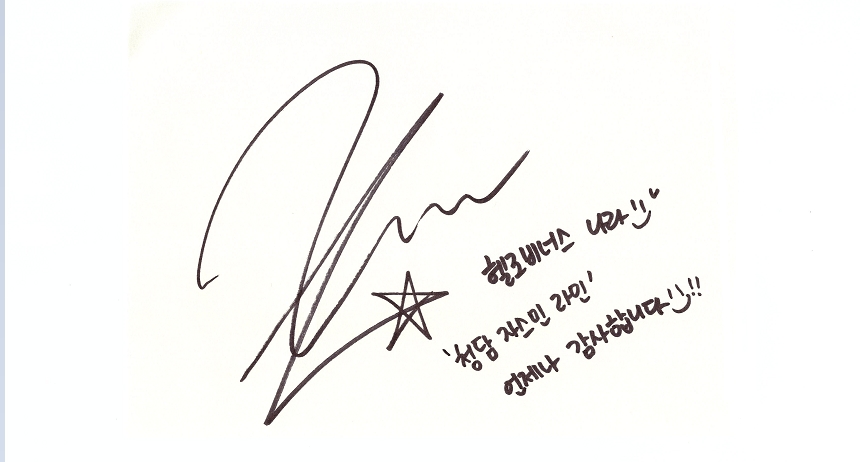 헬로비너스 나라
'청담 자스민 라인'
언제나 감사합니다!!